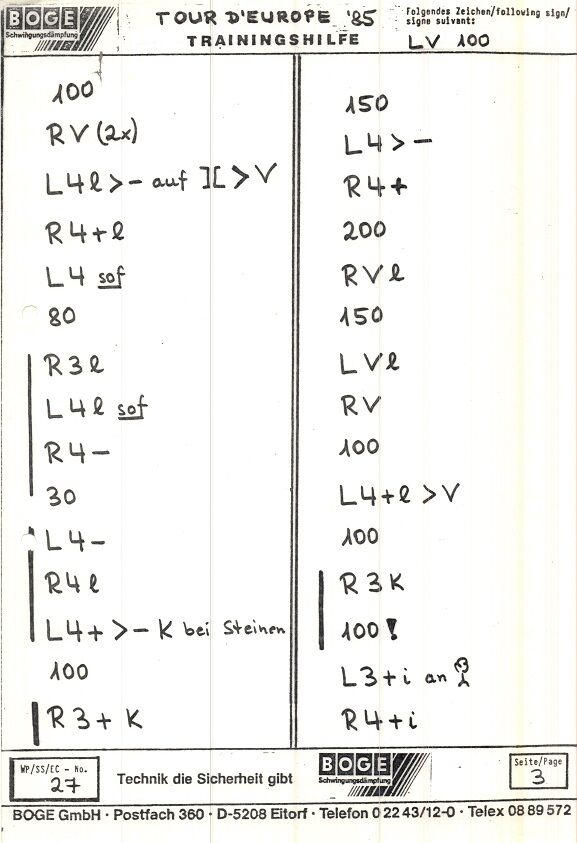 BOGE
Schwingungsdämpfung
TOUR D'EUROPE '85
TRAININGSHILFE
Folgendes Zeichen/following sign/
signe suivant:
LV 100
100
RV (2x)
L4l >- auf ][ > V
R4+l
L4 sof
80
R3l
L4l sof
R4-
30
L4-
R4l
L4+ >- K bei Steinen
100
R3+ K
150
L4 >-
R4+
200
RVl
150
LVl
RV
100
L4+l > V
100
R3K
100!
L3+i an
R4+i
WP/SS/EC - No.
27
Technik die Sicherheit gibt
BOGE
Schwingungsdämpfung
Seite/Page
3
BOGE GmbH · Postfach 360 · D-5208 Eitorf · Telefon 0 22 43/12-0 · Telex 08 89 572